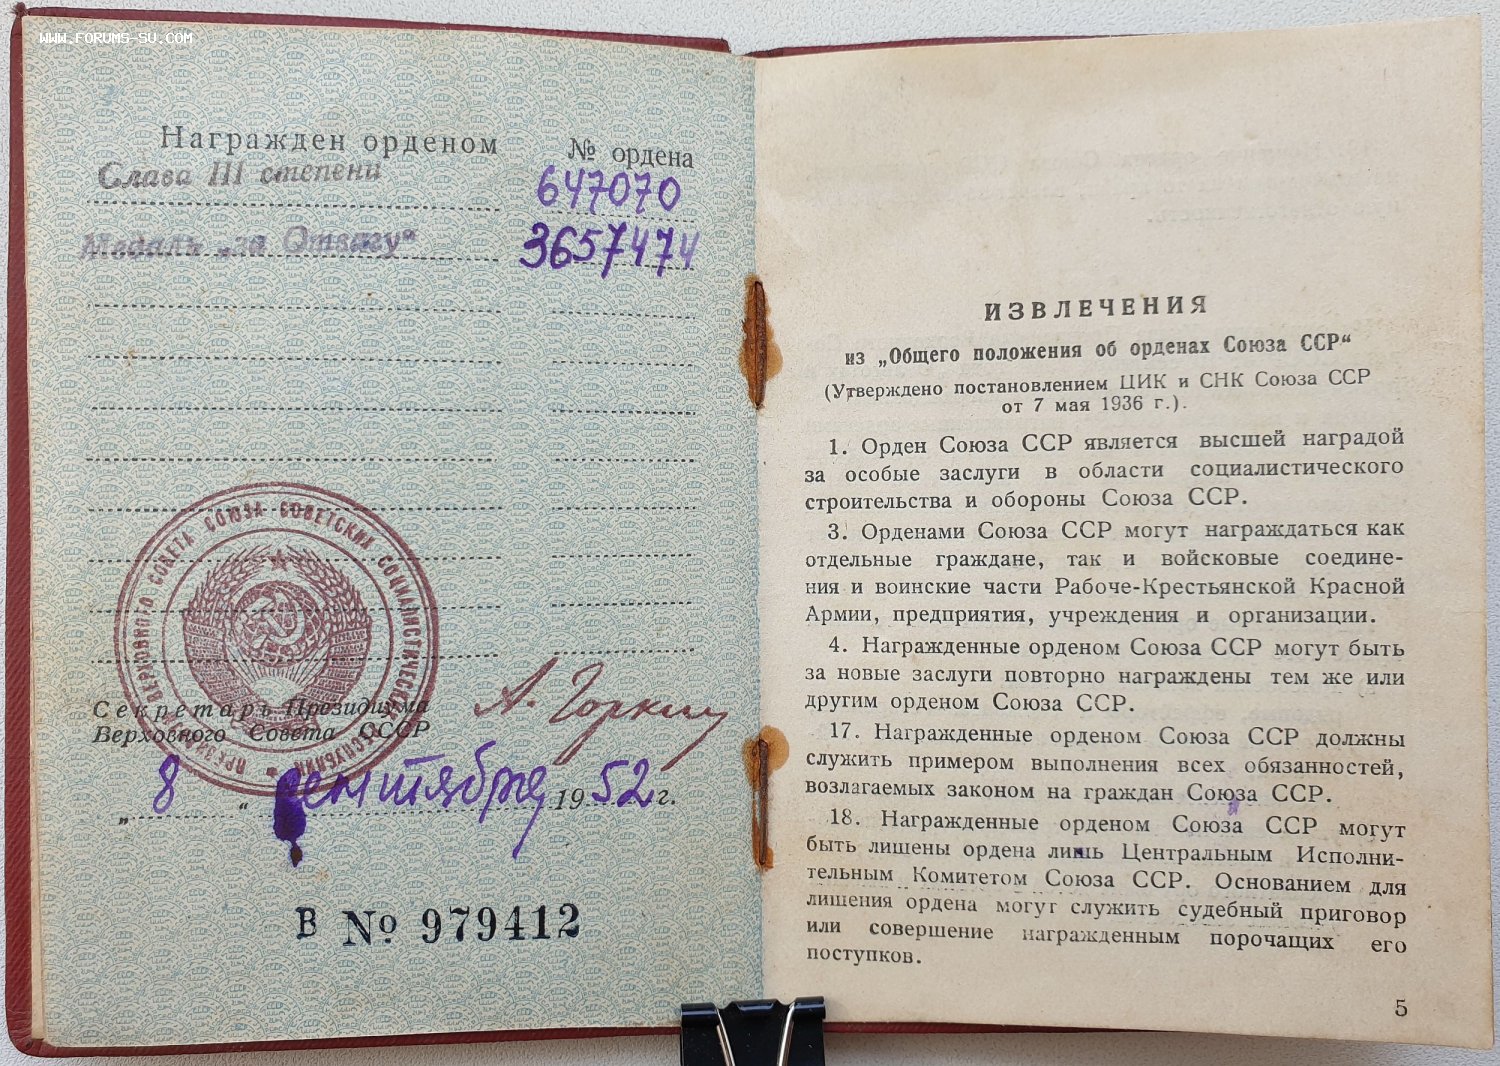 WWW.FORUMS-SU.COM
Награжден орденом
№ ордена
Слава III степени
647070
Медаль „за Отвагу“
3657474
ПРЕЗИДИУМ ВЕРХОВНОГО СОВЕТА СОЮЗА СОВЕТСКИХ СОЦИАЛИСТИЧЕСКИХ РЕСПУБЛИК
Секретарь Президиума
Верховного Совета СССР
А. Горкин
„ 8 “ сентября 1952 г.
В № 979412
ИЗВЛЕЧЕНИЯ
из „Общего положения об орденах Союза ССР“
(Утверждено постановлением ЦИК и СНК Союза ССР
от 7 мая 1936 г.).
1. Орден Союза ССР является высшей наградой
за особые заслуги в области социалистического
строительства и обороны Союза ССР.
3. Орденами Союза ССР могут награждаться как
отдельные граждане, так и войсковые соедине-
ния и воинские части Рабоче-Крестьянской Красной
Армии, предприятия, учреждения и организации.
4. Награжденные орденом Союза ССР могут быть
за новые заслуги повторно награждены тем же или
другим орденом Союза ССР.
17. Награжденные орденом Союза ССР должны
служить примером выполнения всех обязанностей,
возлагаемых законом на граждан Союза ССР.
18. Награжденные орденом Союза ССР могут
быть лишены ордена лишь Центральным Исполни-
тельным Комитетом Союза ССР. Основанием для
лишения ордена могут служить судебный приговор
или совершение награжденным порочащих его
поступков.
5